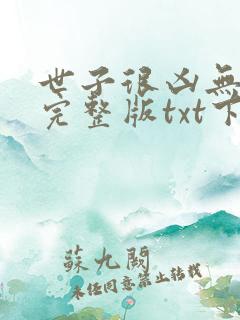 世子很凶無
完整版txt下
蘇九闕
未经同意禁止转载